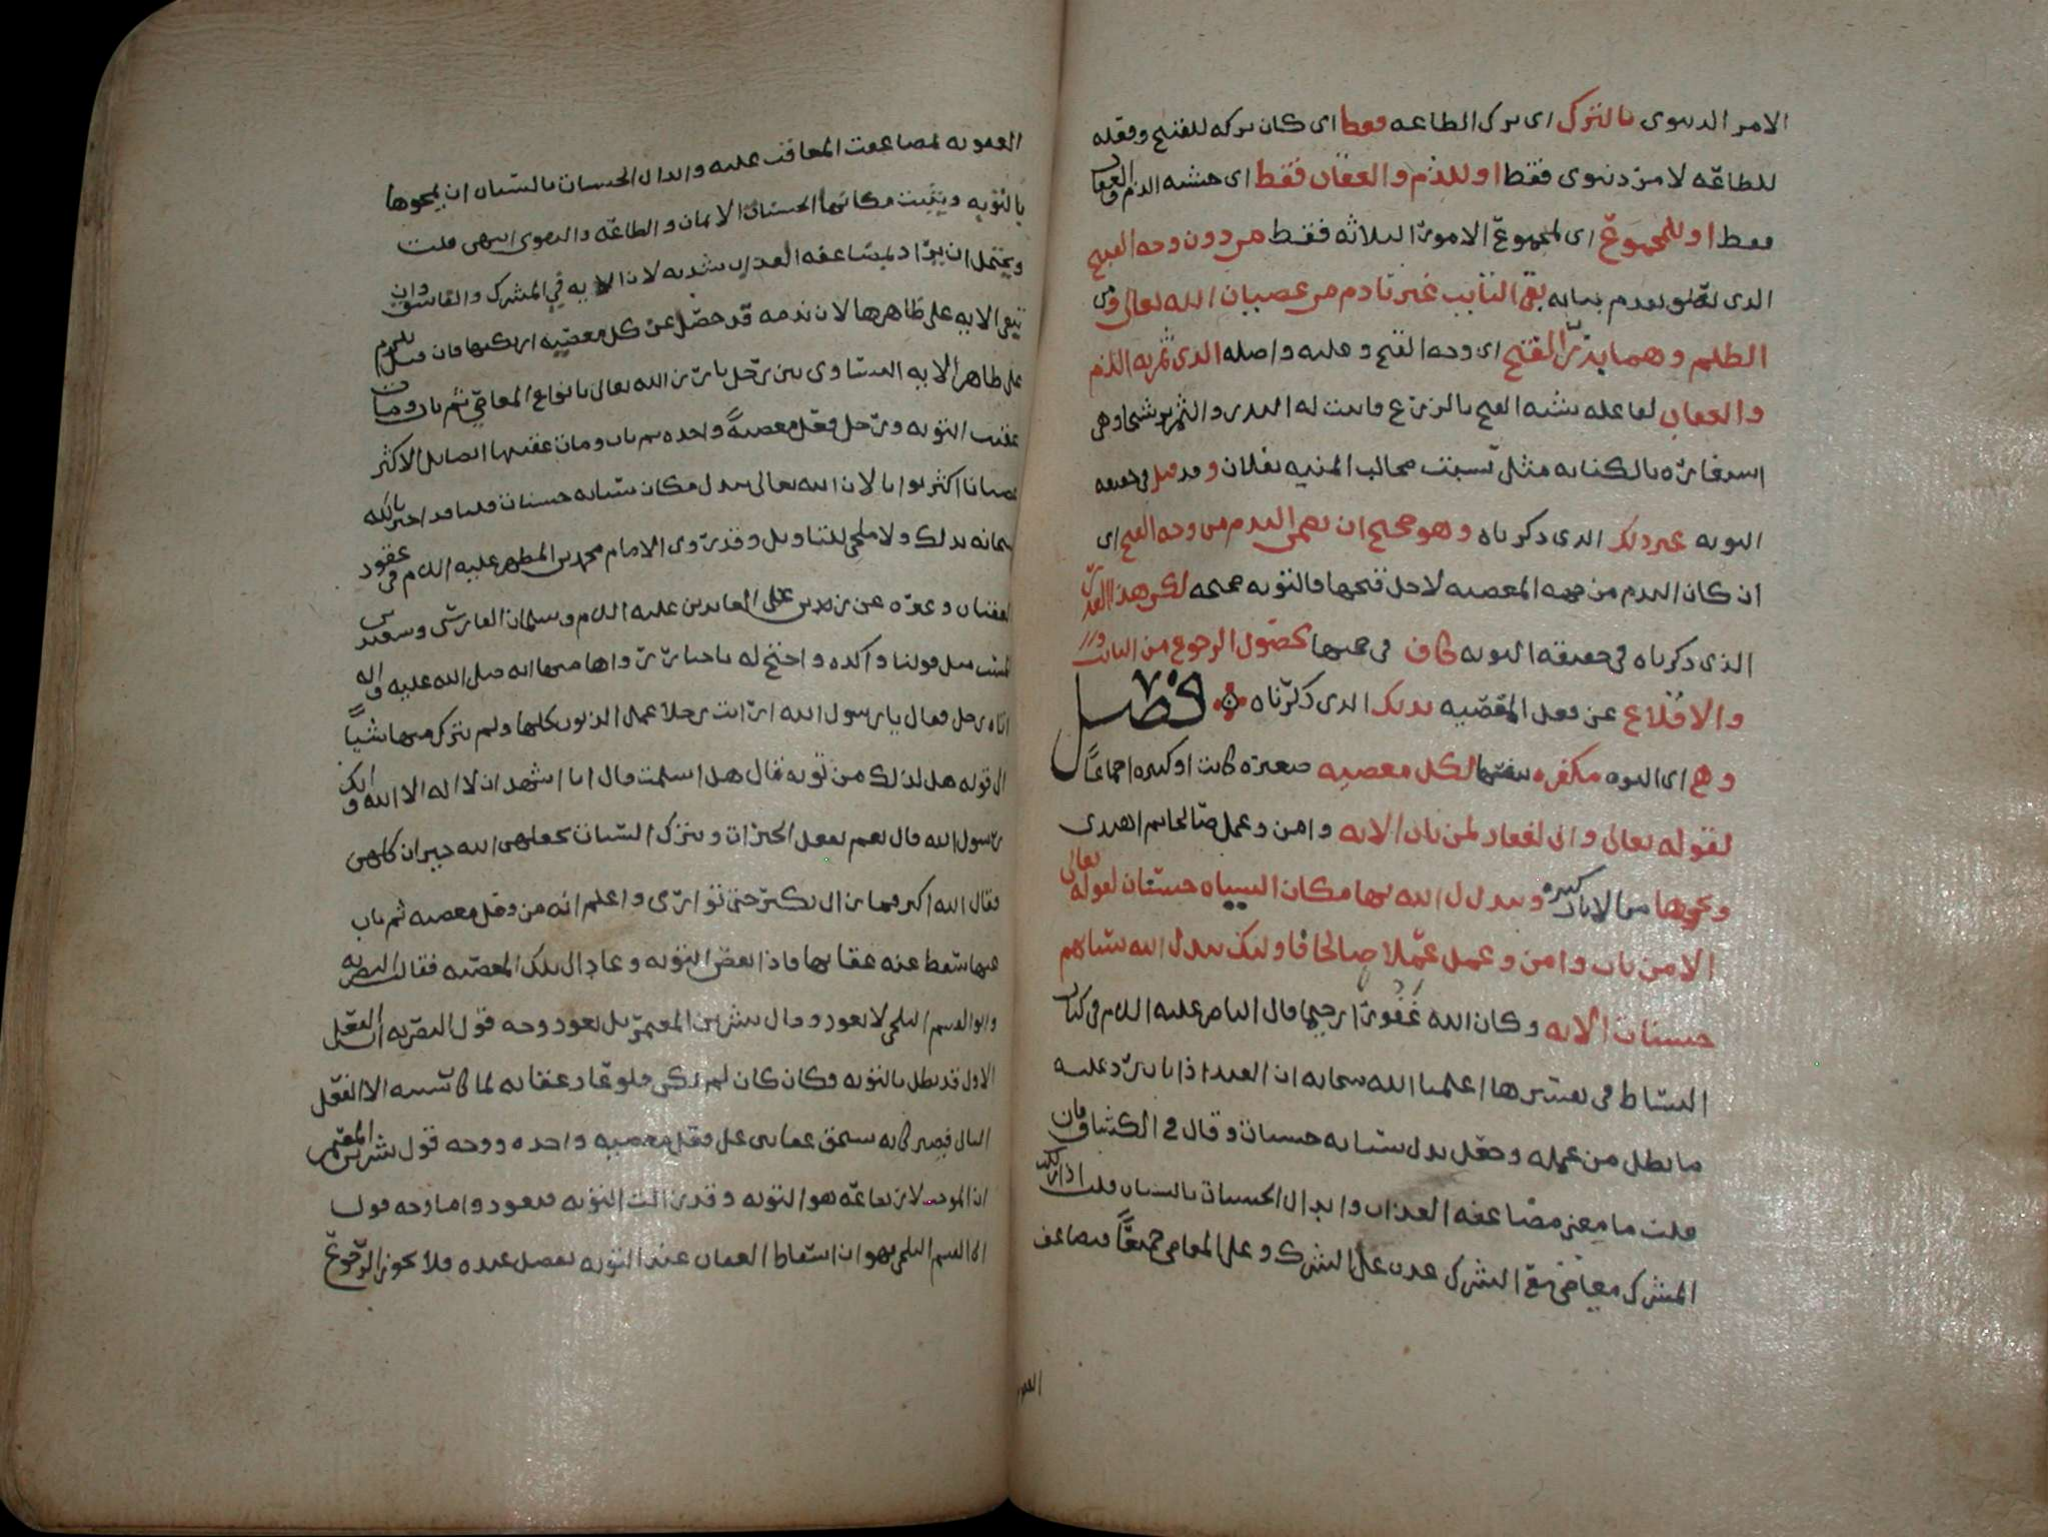 الامر الدنيوي بالترك اى ترك الطاعه فقط اى كان تركه للقبيح وفعله
للطاعه لامر دنيوى فقط او للذم والعقاب فقط اى خشيه الذم والعقاب
فقط او للمجموع اى لمجموع الامور الثلاثه فقط من دون وجه القبح
الذى تقدم بيانه بقى التائب غير نادم من عصيان الله تعالى ومن
الظلم وهما بذر القبح اى وجه القبح وعليه واصله الذى ثمرته الذم
والعقاب لفاعله شبه القبح بالزرع فاثبت له البذر والثمر ترشيحا وهى
استعاره بالكنايه مثل نشبت مخالب المنيه بفلان وقد قيل فى حقيقه
التوبه غير ذلك الذى ذكرناه وهو صحيح ان يعمى الندم من وجه القبح اى
ان كان الندم من جهه المعصيه لاجل قبحها فالتوبه صحيحه لكن هذا القدر
الذى ذكرناه فى حقيقه التوبه كاف فى صحتها لحصول الرجوع من التائب
والاقلاع عن فعل المعصيه بذلك الذى ذكرناه فصل
وهى اى التوبه مكفره بنفسها لكل معصيه صغيره كانت او كبيره اجماعاً
لقوله تعالى وانى لغفار لمن تاب الايه وامن وعمل صالحا ثم اهتدى
ونحوها من الايات كثيره ويبدل الله بها مكان السيئات حسنات لقوله تعالى
الا من تاب وامن وعمل عملا صالحا فاولئك يبدل الله سيئاتهم
حسنات الايه وكان الله غفورا رحيما قال الناصر عليه السلام فى كتاب
البساط فى تفسيرها اعلمنا الله سبحانه ان العبد اذا تاب رد عليه
ما بطل من عمله وجعل بدل سيئاته حسنات وقال فى الكشاف فان
قلت ما معنى مضاعفه العذاب وابدال الحسنات بالسيئات قلت اذا ارتكب
المشرك معاصى مع الشرك عذب على الشرك وعلى المعاصى جميعاً فتضاعف
العقوبه
العقوبه لمضاعفت المعاقب عليه وابدال الحسنات بالسيئات ان يمحوها
بالتوبه ويثبت مكانها الحسنات الايمان والطاعه والتقوى انتهى قلت
ويحتمل ان يراد بمضاعفه العذاب شدته لان الايه فى المشرك والفاسق وان
تبقى الايه على ظاهرها لان ندمه قد حصل عن كل معصيه ارتكبها فان قيل يلزم
على ظاهر الايه التساوى بين رجل بارز الله تعالى بانواع المعاصى ثم تاب ومات
عقيب التوبه ورجل فعل معصيةً واحده ثم تاب ومات عقيبها الاكثر
عصيانا اكثر ثوابا لان الله تعالى يبدل مكان سيئاته حسنات قلنا قد اخبر الله
سبحانه بذلك ولا ملجئ للتاويل وقد روى الامام محمد بن المطهر عليه السلام فى عقود
العقيان وغيره عن زين العابدين عليه السلام وسلمان الفارسى وسعيد بن
المسيب مثل قولنا واكده واحتج له باخبار رواها منها انه صلى الله عليه واله
اتاه رجل فقال يا رسول الله ارايت رجلا عمل الذنوب كلها ولم يترك منها شياً
الى قوله هل لذلك من توبه فقال هل اسلمت قال انا اشهد ان لا اله الا الله وانك
رسول الله قال نعم تفعل الخيرات وتترك السيئات يجعلهن الله خيرات كلهن
فقال الله اكبر فما زال يكبر حتى توارى واعلم انه من فعل معصيه ثم تاب
عنها سقط عنه عقابها فاذا نقض التوبه وعاد الى تلك المعصيه فقالت البصريه
وابو القسم البلخى لا يعود وقال بشر بن المعتمر بل يعود وجه قول البصريه ان الفعل
الاول قد بطل بالتوبه وكان كان لم يكن فلو عاد عقابه لما كان سببه الا الفعل
الثانى فيصير كانه يستحق عقابين على فعل معصيه واحده ووجه قول بشر بن المعتمر
ان الموجب لارتفاعه هو التوبه وقد زالت التوبه فيعود واما وجه قول
ابى القسم البلخى فهو ان اسقاط العقاب عند التوبه تفضل عنده فلا يجوز الرجوع